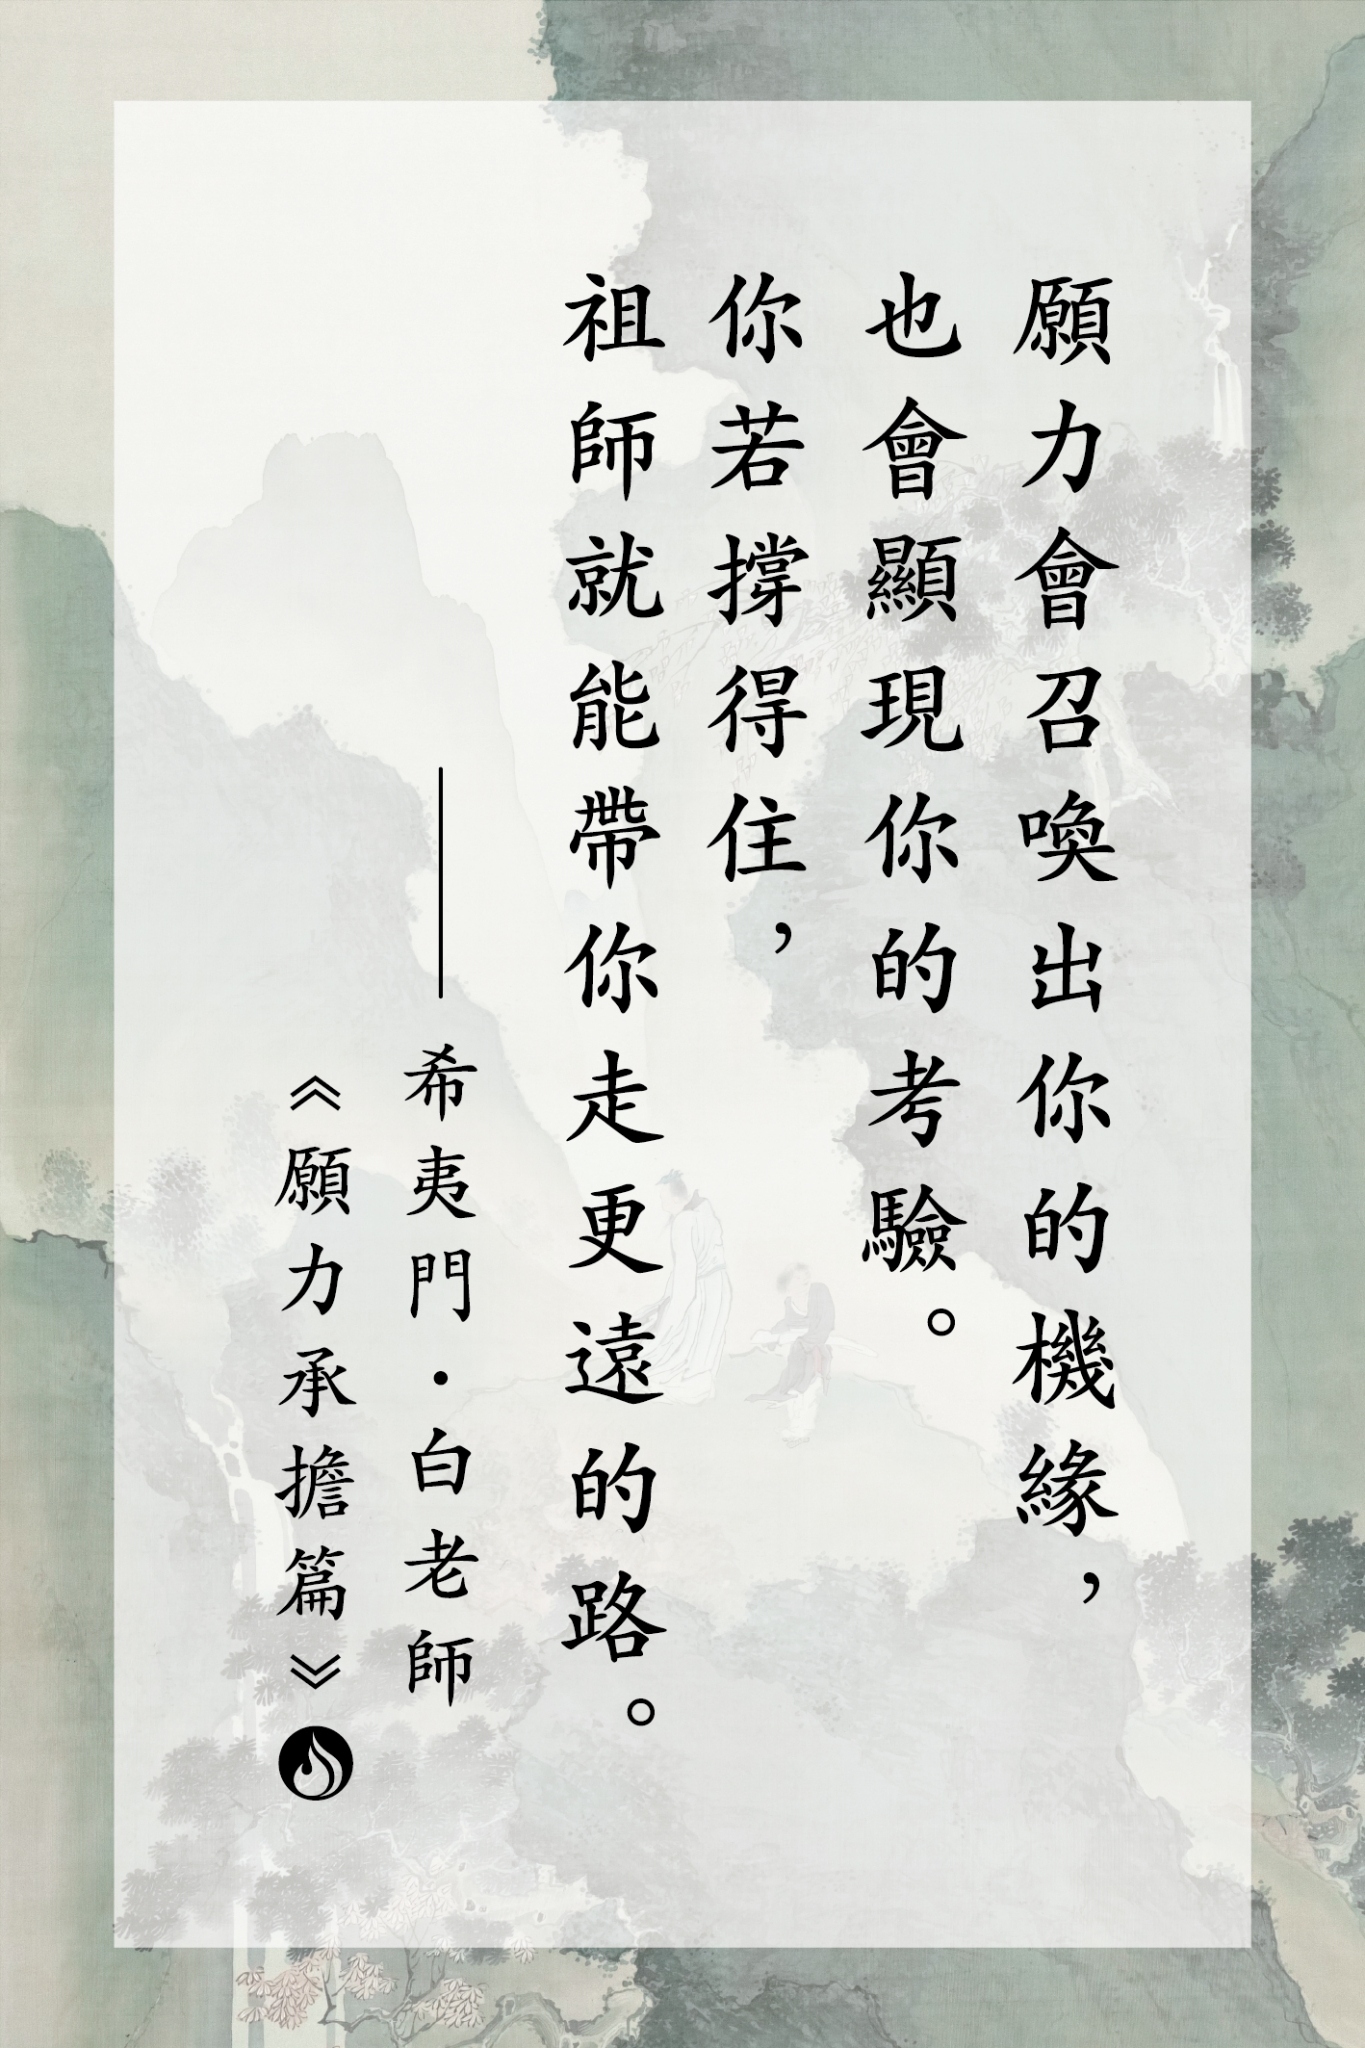 願力會召喚出你的機緣，
也會顯現你的考驗。
你若撐得住，
祖師就能帶你走更遠的路。
——希夷門．白老師
《願力承擔篇》